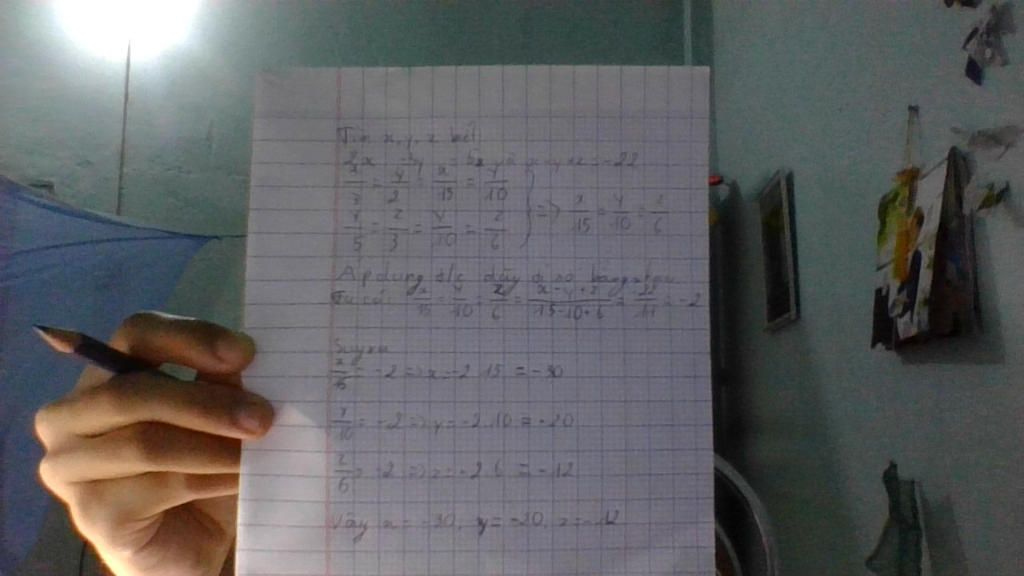 Tìm x, y, z biết
2x = 3y = 5z và x - y + z = -22
x/3 = y/2 = x/15 = y/10
y/5 = z/3 = y/10 = z/6 } => x/15 = y/10 = z/6
Áp dụng t/c dãy tỉ số bằng nhau
Ta có: x/15 = y/10 = z/6 = x - y + z/15 - 10 + 6 = -22/11 = -2
Suy ra
x/15 = -2 => x = -2.15 = -30
y/10 = -2 => y = -2.10 = -20
z/6 = -2 => z = -2.6 = -12
Vậy x = -30, y = -20, z = -12